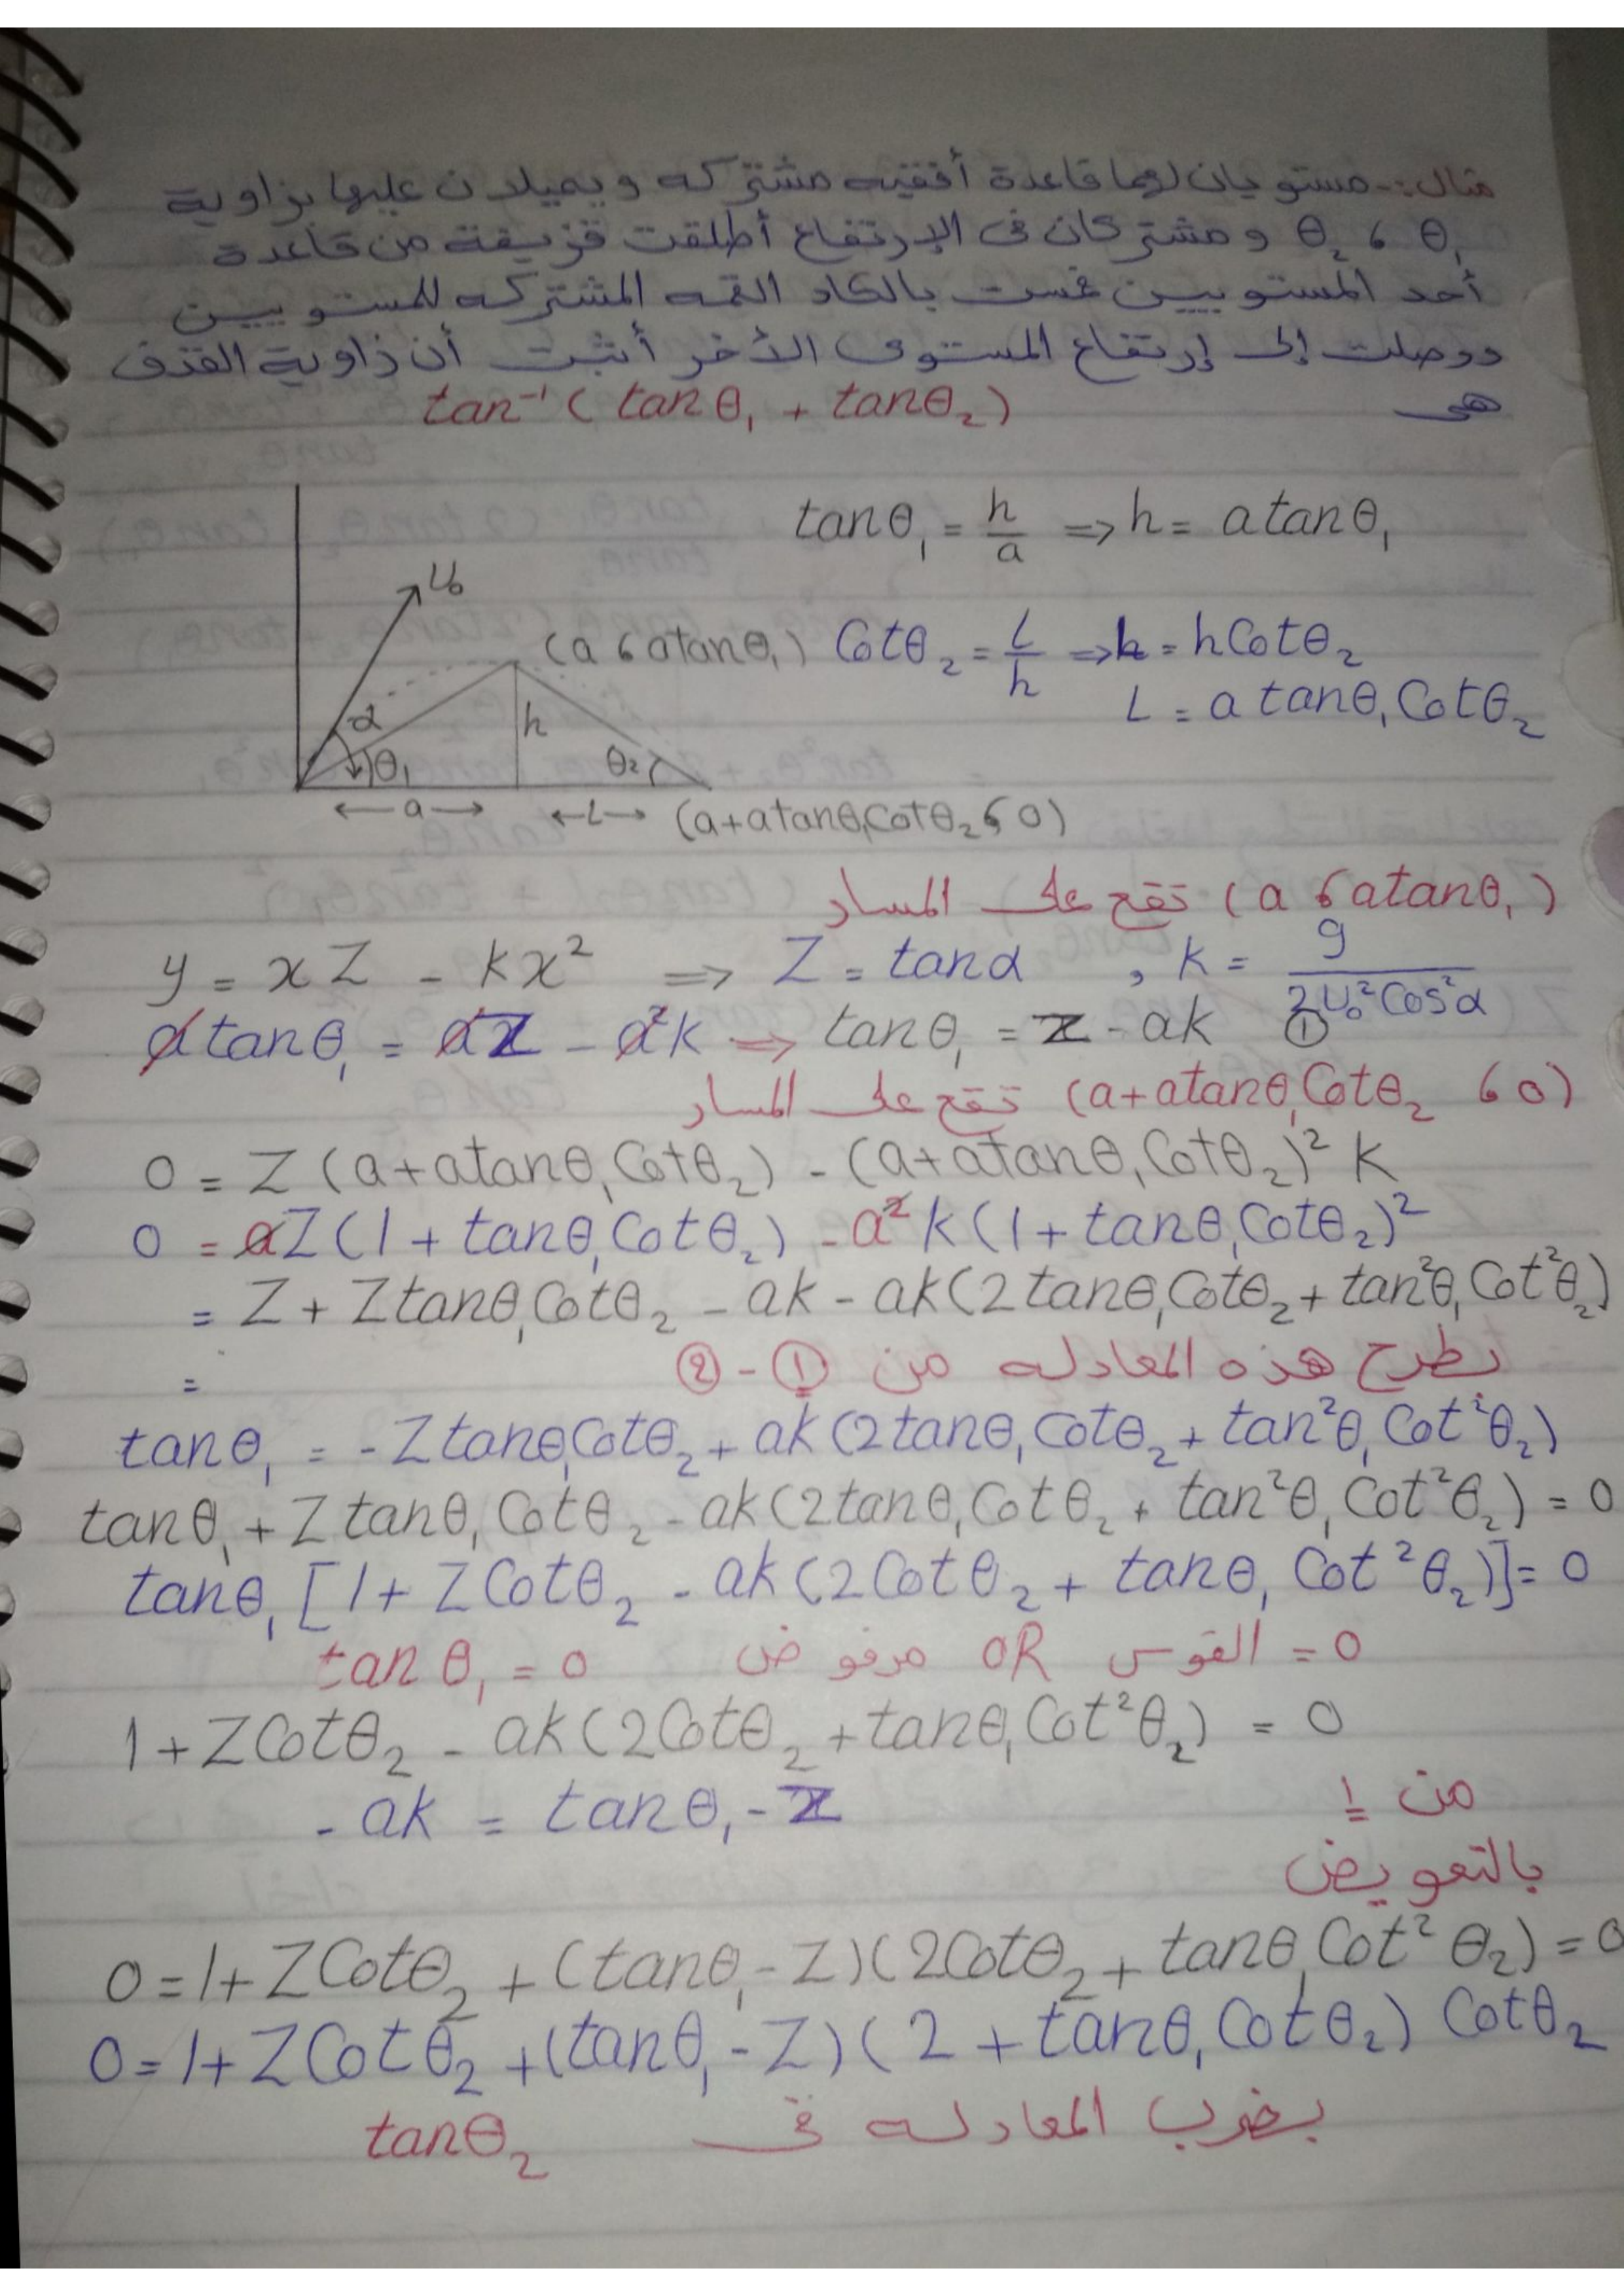 مثال:- مستويان لهما قاعدة أفقيه مشتركه ويميلان عليها بزاوية
θ₁ ، θ₂ و مشتركان فى الإرتفاع أطلقت قزيفة من قاعدة
أحد المستويين فمست بالكاد القمه المشتركه للمستويين
ووصلت إلى إرتفاع المستوى الأخر أثبت أن زاوية القذف
هى tan⁻¹ ( tanθ₁ + tanθ₂ )
tanθ₁ = h/a ⇒ h = a tanθ₁
U₀
(a ، a tanθ₁) Cotθ₂ = L/h ⇒ h = h Cotθ₂
L = a tanθ₁ Cotθ₂
α h
θ₁ θ₂
←a→ ←L→ (a+a tanθ₁Cotθ₂ ، 0)
(a ، a tanθ₁) تقع على المسار
y = xZ - kx² ⇒ Z = tanα , k = g/(2U₀²Cos²α)
a tanθ₁ = aZ - a²k ⇒ tanθ₁ = Z - ak ①
(a+a tanθ₁Cotθ₂ ، 0) تقع على المسار
0 = Z(a+a tanθ₁Cotθ₂) - (a+a tanθ₁Cotθ₂)² k
0 = aZ(1 + tanθ₁Cotθ₂) - a²k(1 + tanθ₁Cotθ₂)²
= Z + Z tanθ₁Cotθ₂ - ak - ak(2tanθ₁Cotθ₂ + tan²θ₁Cot²θ₂)
نطرح هذه المعادله من ① - ②
=
tanθ₁ = -Z tanθ₁Cotθ₂ + ak(2tanθ₁Cotθ₂ + tan²θ₁Cot²θ₂)
tanθ₁ + Z tanθ₁Cotθ₂ - ak(2tanθ₁Cotθ₂ + tan²θ₁Cot²θ₂) = 0
tanθ₁ [1 + Z Cotθ₂ - ak(2Cotθ₂ + tanθ₁ Cot²θ₂)] = 0
tanθ₁ = 0 مرفوض OR القوس = 0
1 + Z Cotθ₂ - ak(2Cotθ₂ + tanθ₁Cot²θ₂) = 0
- ak = tanθ₁ - Z من 1
بالتعويض
0 = 1 + Z Cotθ₂ + (tanθ₁ - Z)(2Cotθ₂ + tanθ₁Cot²θ₂) = 0
0 = 1 + Z Cotθ₂ + (tanθ₁ - Z)(2 + tanθ₁Cotθ₂) Cotθ₂
بضرب المعادله فى tanθ₂